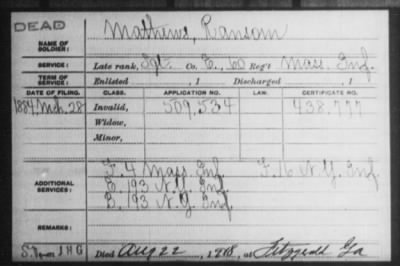 DEAD
NAME OF SOLDIER: Mathews, Ransom
SERVICE: Late rank, Sgt. Co. E, 60 Reg't Mass. Inf.
TERM OF SERVICE: Enlisted , 1 Discharged , 1
DATE OF FILING. CLASS. APPLICATION NO. LAW. CERTIFICATE NO.
1884, Mch. 28 Invalid, 509,534 438,777
Widow,
Minor,
ADDITIONAL SERVICES: F. 4 Mass. Inf. F. 16 N.Y. Inf.
E. 193 N.Y. Inf.
B. 193 N.Y. Inf.
REMARKS:
Died Aug 22, 1918, at Fitzgerald Ga